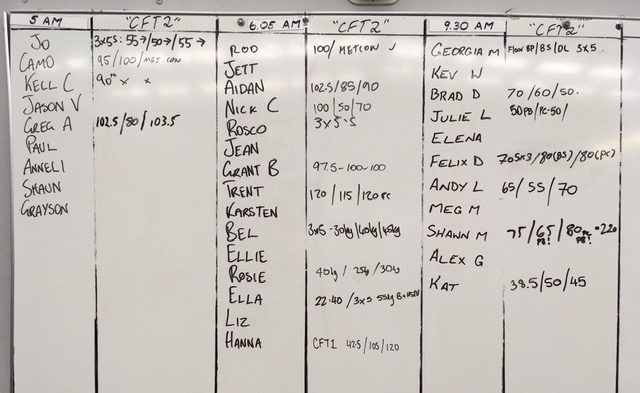 5 AM "CFT2"
JO 3x5s: 55→/50→/55→
CAMO 95/100/MET CON
KELL C 90" x x
JASON V
GREG A 102.5/80/103.5
PAUL
ANNELI
SHAUN
GRAYSON
6.05 AM "CFT2"
ROD 100/METCON
JETT
AIDAN 102.5/85/90
NICK C 100/50/70
ROSCO 3x5's
JEAN
GRANT B 97.5-100-100
TRENT 120/115/120 PC
KARSTEN
BEL 3x5-30kg/40kg/45kg
ELLIE
ROSIE 40kg/25kg/30kg
ELLA 22.40/3x5 55kg
LIZ
HANNA CFT1 42.5/105/120
9.30 AM "CFT2"
GEORGIA M FLOOR BP/BS/DL 3x5
KEV W
BRAD D 70/60/50.
JULIE L 50PB/PC-50/
ELENA
FELIX D 70 5x3/80(BS)/80(PC)
ANDY L 65/55/70
MEG M
SHAWN M 75/65 PB!/80PC PB! =220
ALEX G
KAT 38.5/50/45